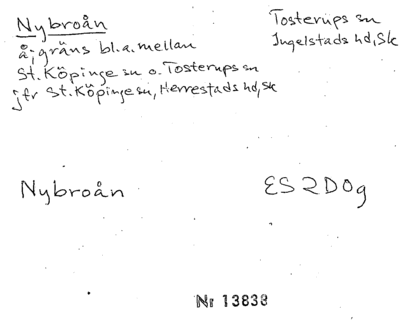 Nybroån
Tosterups sn
Ingelstads hd, Sk
å; gräns bl.a. mellan
St. Köpinge sn o. Tosterups sn
jfr St. Köpinge sn, Herrestads hd, Sk
Nybroån
ES 2D0g
Nr 13838